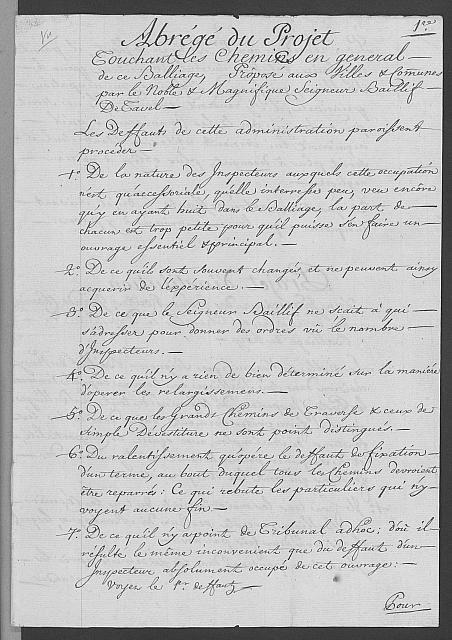 1.re
Abrégé du Projet
Touchant les Chemins en general
de ce Balliage, Proposé aux Villes & Comunes
par le Noble & Magnifique Seigneur Baillif
De Tavel
Les Deffauts de cette administration paroissent
proceder
1.o De la nature des Inspecteurs auxquels cette occupation
n'est qu'accessoriale, qu'elle interresse peu, veu encôre
qu'y en ayant huit dans le Balliage, la part de
chacun est trop petite pour qu'il puisse s'en faire un
ouvrage essentiel & principal.
2.o De ce qu'ils sont souvent changés, et ne peuvent ainsy
acquerir de l'expérience.
3.o De ce que le Seigneur Baillif ne scait à qui
s'adresser pour donner des ordres vû le nombre
d'Inspecteurs.
4.o De ce qu'il n'y a rien de bien déterminé sur la maniére
d'óperer les relargissemens.
5.o De ce que les grands Chemins de Traverse & ceux de
simple Dévestiture ne sont point distingués.
6.o Du ralentissement qu'opére le deffaut de fixation
d'un terme, au bout duquel tous les Chemins devroient
être reparrés : Ce qui rebute les particuliers qui n'y
voyent aucune fin
7.o De ce qu'il n'y a point de Tribunal adhoc ; d'où il
résulte le même inconvenient que du deffaut d'un
Inspecteur absolument occupé de cet ouvrage :
Voyez le 1.r deffaut
Pour